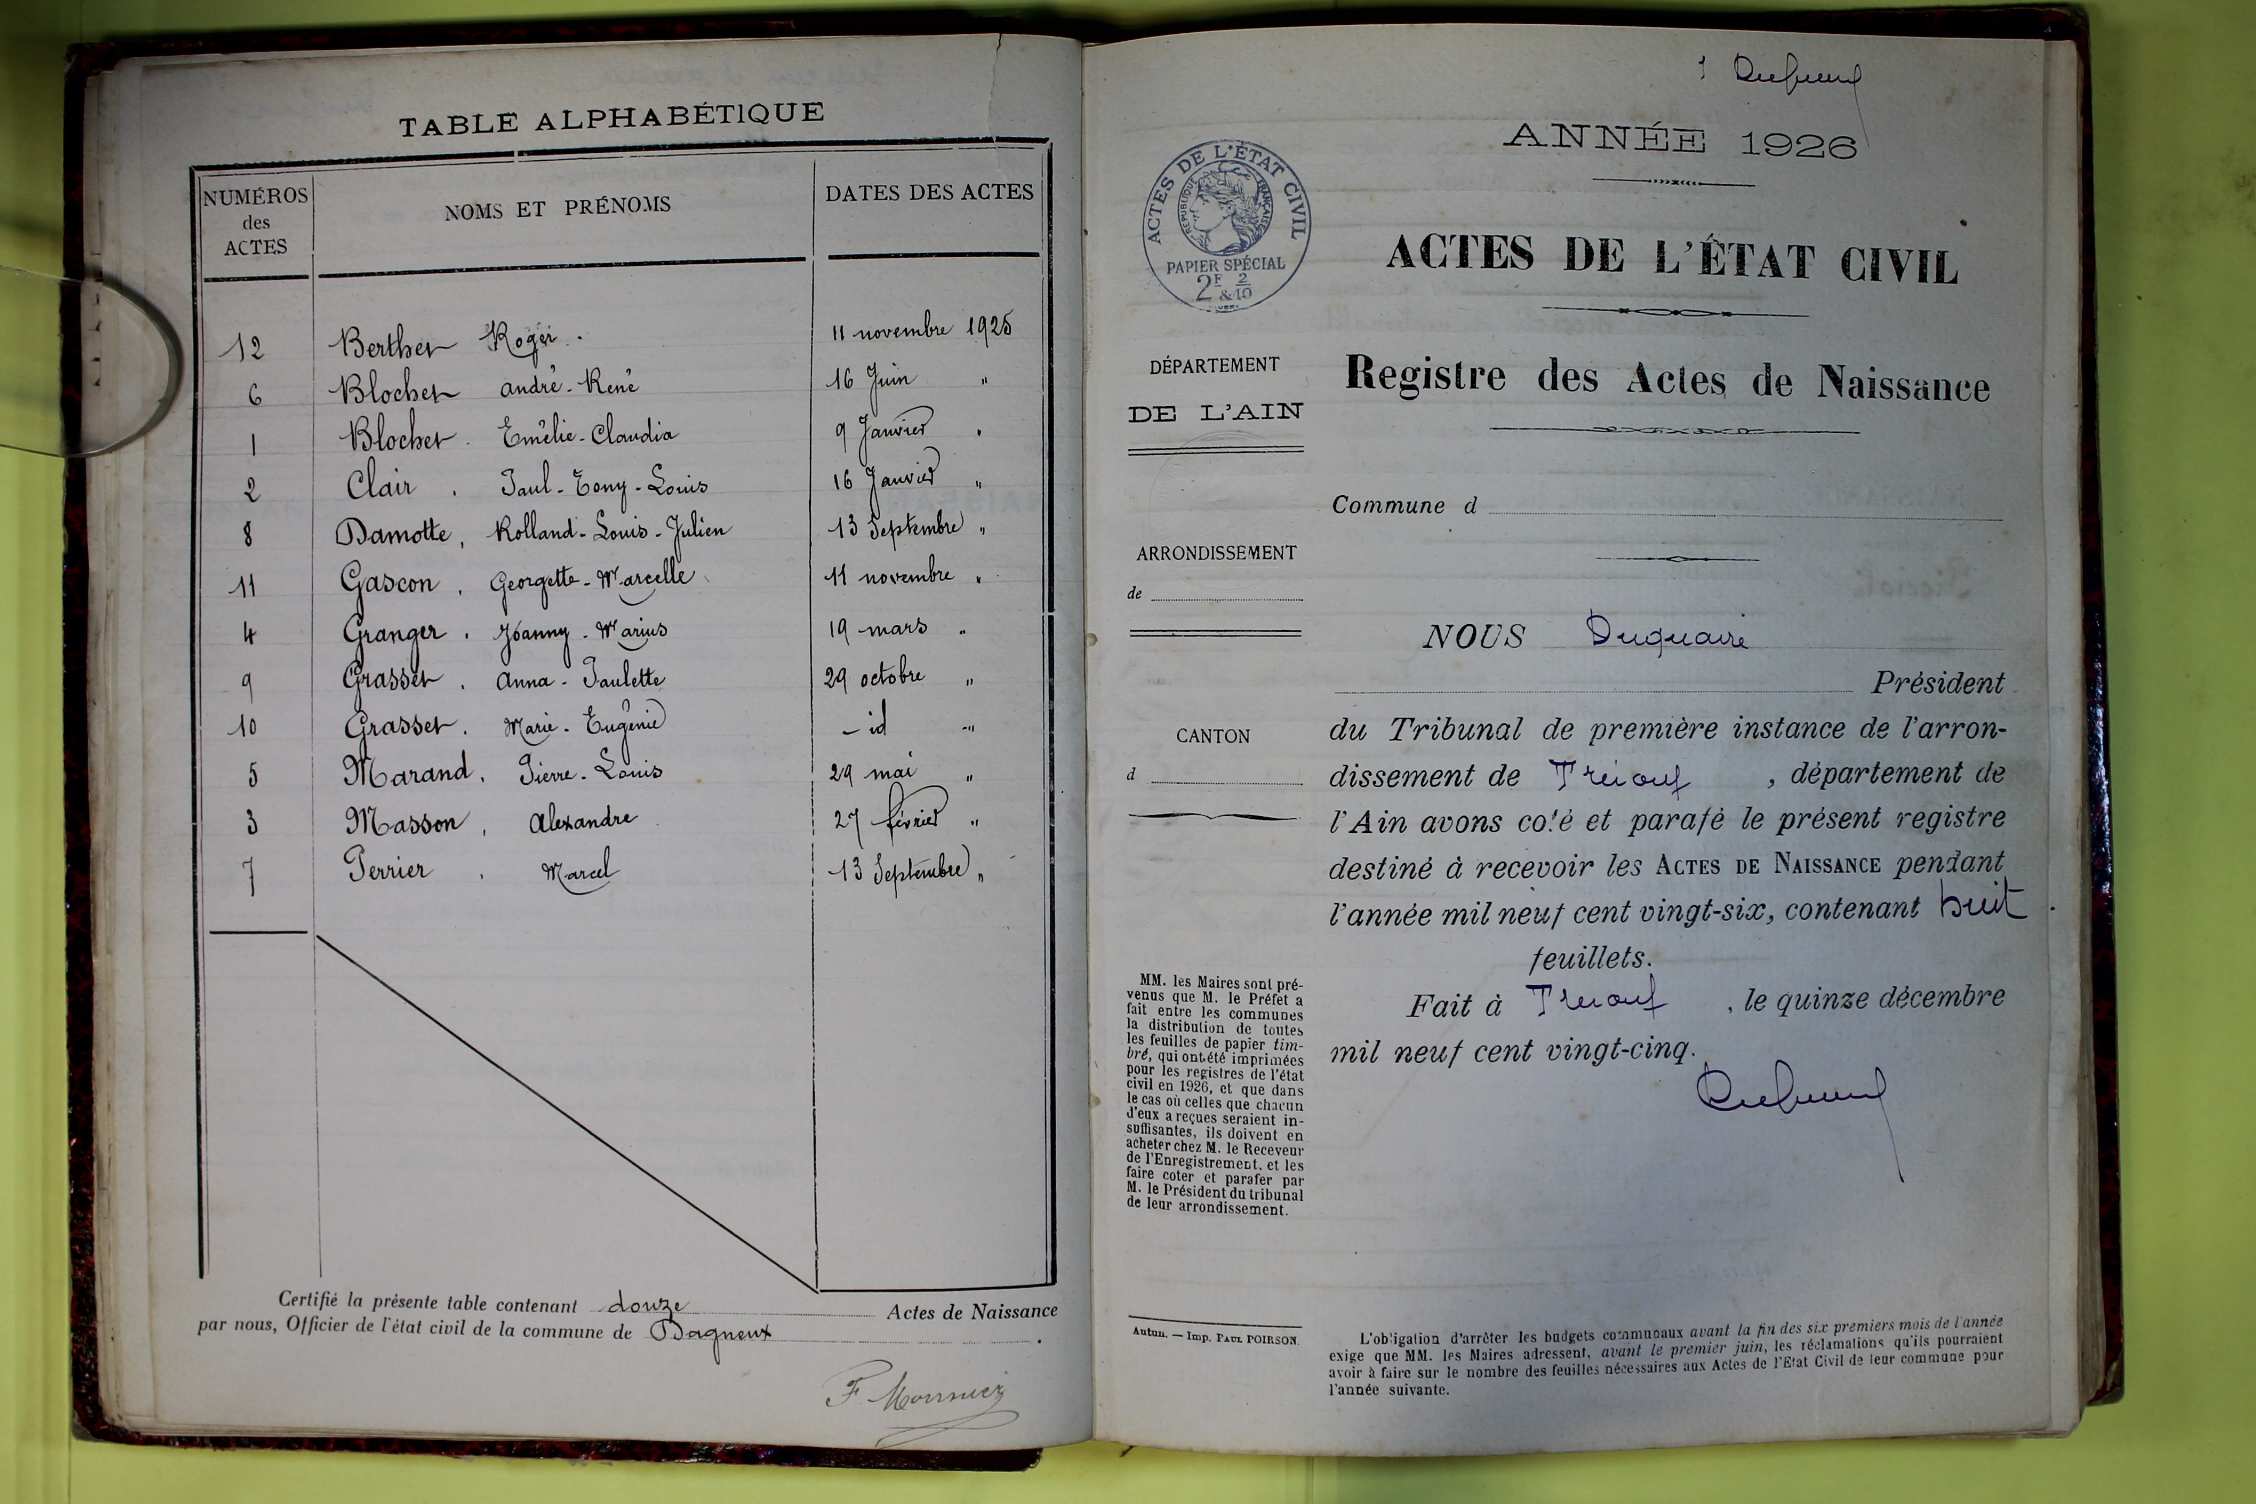 TABLE ALPHABÉTIQUE
NUMÉROS des ACTES
NOMS ET PRÉNOMS
DATES DES ACTES
12 Berthet Roger. 11 novembre 1925
6 Blochet André-René 16 Juin "
1 Blochet. Emélie-Claudia 9 Janvier "
2 Clair. Paul-Tony-Louis 16 Janvier "
8 Damotte, Rolland-Louis-Julien 13 Septembre "
11 Gascon. Georgette-Marcelle 11 novembre "
4 Granger. Joanny-Marius 19 mars "
9 Grasset. Anna-Paulette 29 octobre "
10 Grasset. Marie-Eugénie - id "
5 Marand. Pierre-Louis 29 mai "
3 Masson, Alexandre 27 février "
7 Perrier. Marcel 13 Septembre "
Certifié la présente table contenant douze Actes de Naissance
par nous, Officier de l'état civil de la commune de Dagneux.
1
ANNÉE 1926
ACTES DE L'ÉTAT CIVIL
RÉPUBLIQUE FRANÇAISE
PAPIER SPÉCIAL
2F & 2/10
ACTES DE L'ÉTAT CIVIL
Registre des Actes de Naissance
DÉPARTEMENT
DE L'AIN
Commune d
ARRONDISSEMENT
de
CANTON
d
NOUS Duquaire
Président
du Tribunal de première instance de l'arron-
dissement de Trévoux, département de
l'Ain avons coté et parafé le présent registre
destiné à recevoir les ACTES DE NAISSANCE pendant
l'année mil neuf cent vingt-six, contenant huit
feuillets.
Fait à Trévoux, le quinze décembre
mil neuf cent vingt-cinq.
MM. les Maires sont pré-
venus que M. le Préfet a
fait entre les communes
la distribution de toutes
les feuilles de papier tim-
bré, qui ont été imprimées
pour les registres de l'état
civil en 1926, et que dans
le cas où celles que chacun
d'eux a reçues seraient in-
suffisantes, ils doivent en
acheter chez M. le Receveur
de l'Enregistrement, et les
faire coter et parafer par
M. le Président du tribunal
de leur arrondissement.
Autun. — Imp. PAUL POIRSON.
L'obligation d'arrêter les budgets communaux avant la fin des six premiers mois de l'année
exige que MM. les Maires adressent, avant le premier juin, les réclamations qu'ils pourraient
avoir à faire sur le nombre des feuilles nécessaires aux Actes de l'Etat Civil de leur commune pour
l'année suivante.